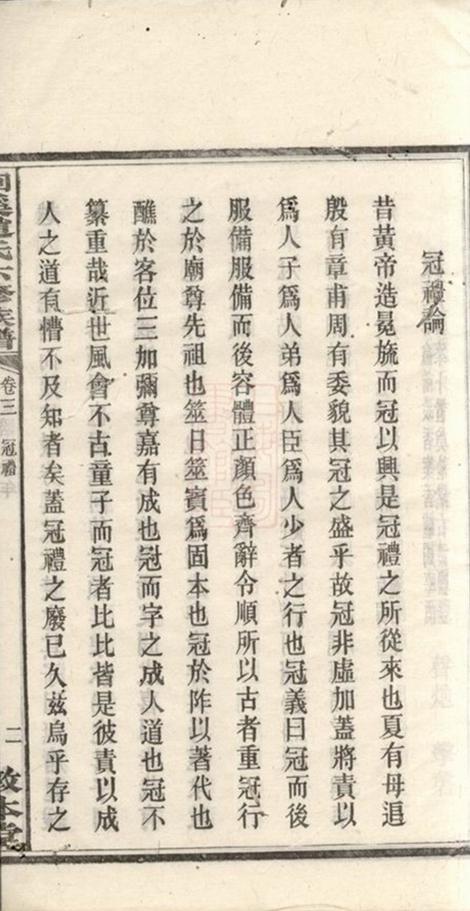 冠禮論
昔黃帝造冕旒而冠以興是冠禮之所從來也夏有母追
殷有章甫周有委貌其冠之盛乎故冠非虛加蓋將責以
爲人子爲人弟爲人臣爲人少者之行也冠義曰冠而後
服備服備而後容體正顏色齊辭令順所以古者重冠行
之於廟尊先祖也筮日筮賓爲固本也冠於阼以著代也
醮於客位三加彌尊嘉有成也冠而字之成人道也冠不
綦重哉近世風會不古童子而冠者比比皆是彼責以成
人之道有懵不及知者矣蓋冠禮之廢已久茲烏乎存之
氏六修族譜
卷三
冠禮
二
敦本堂